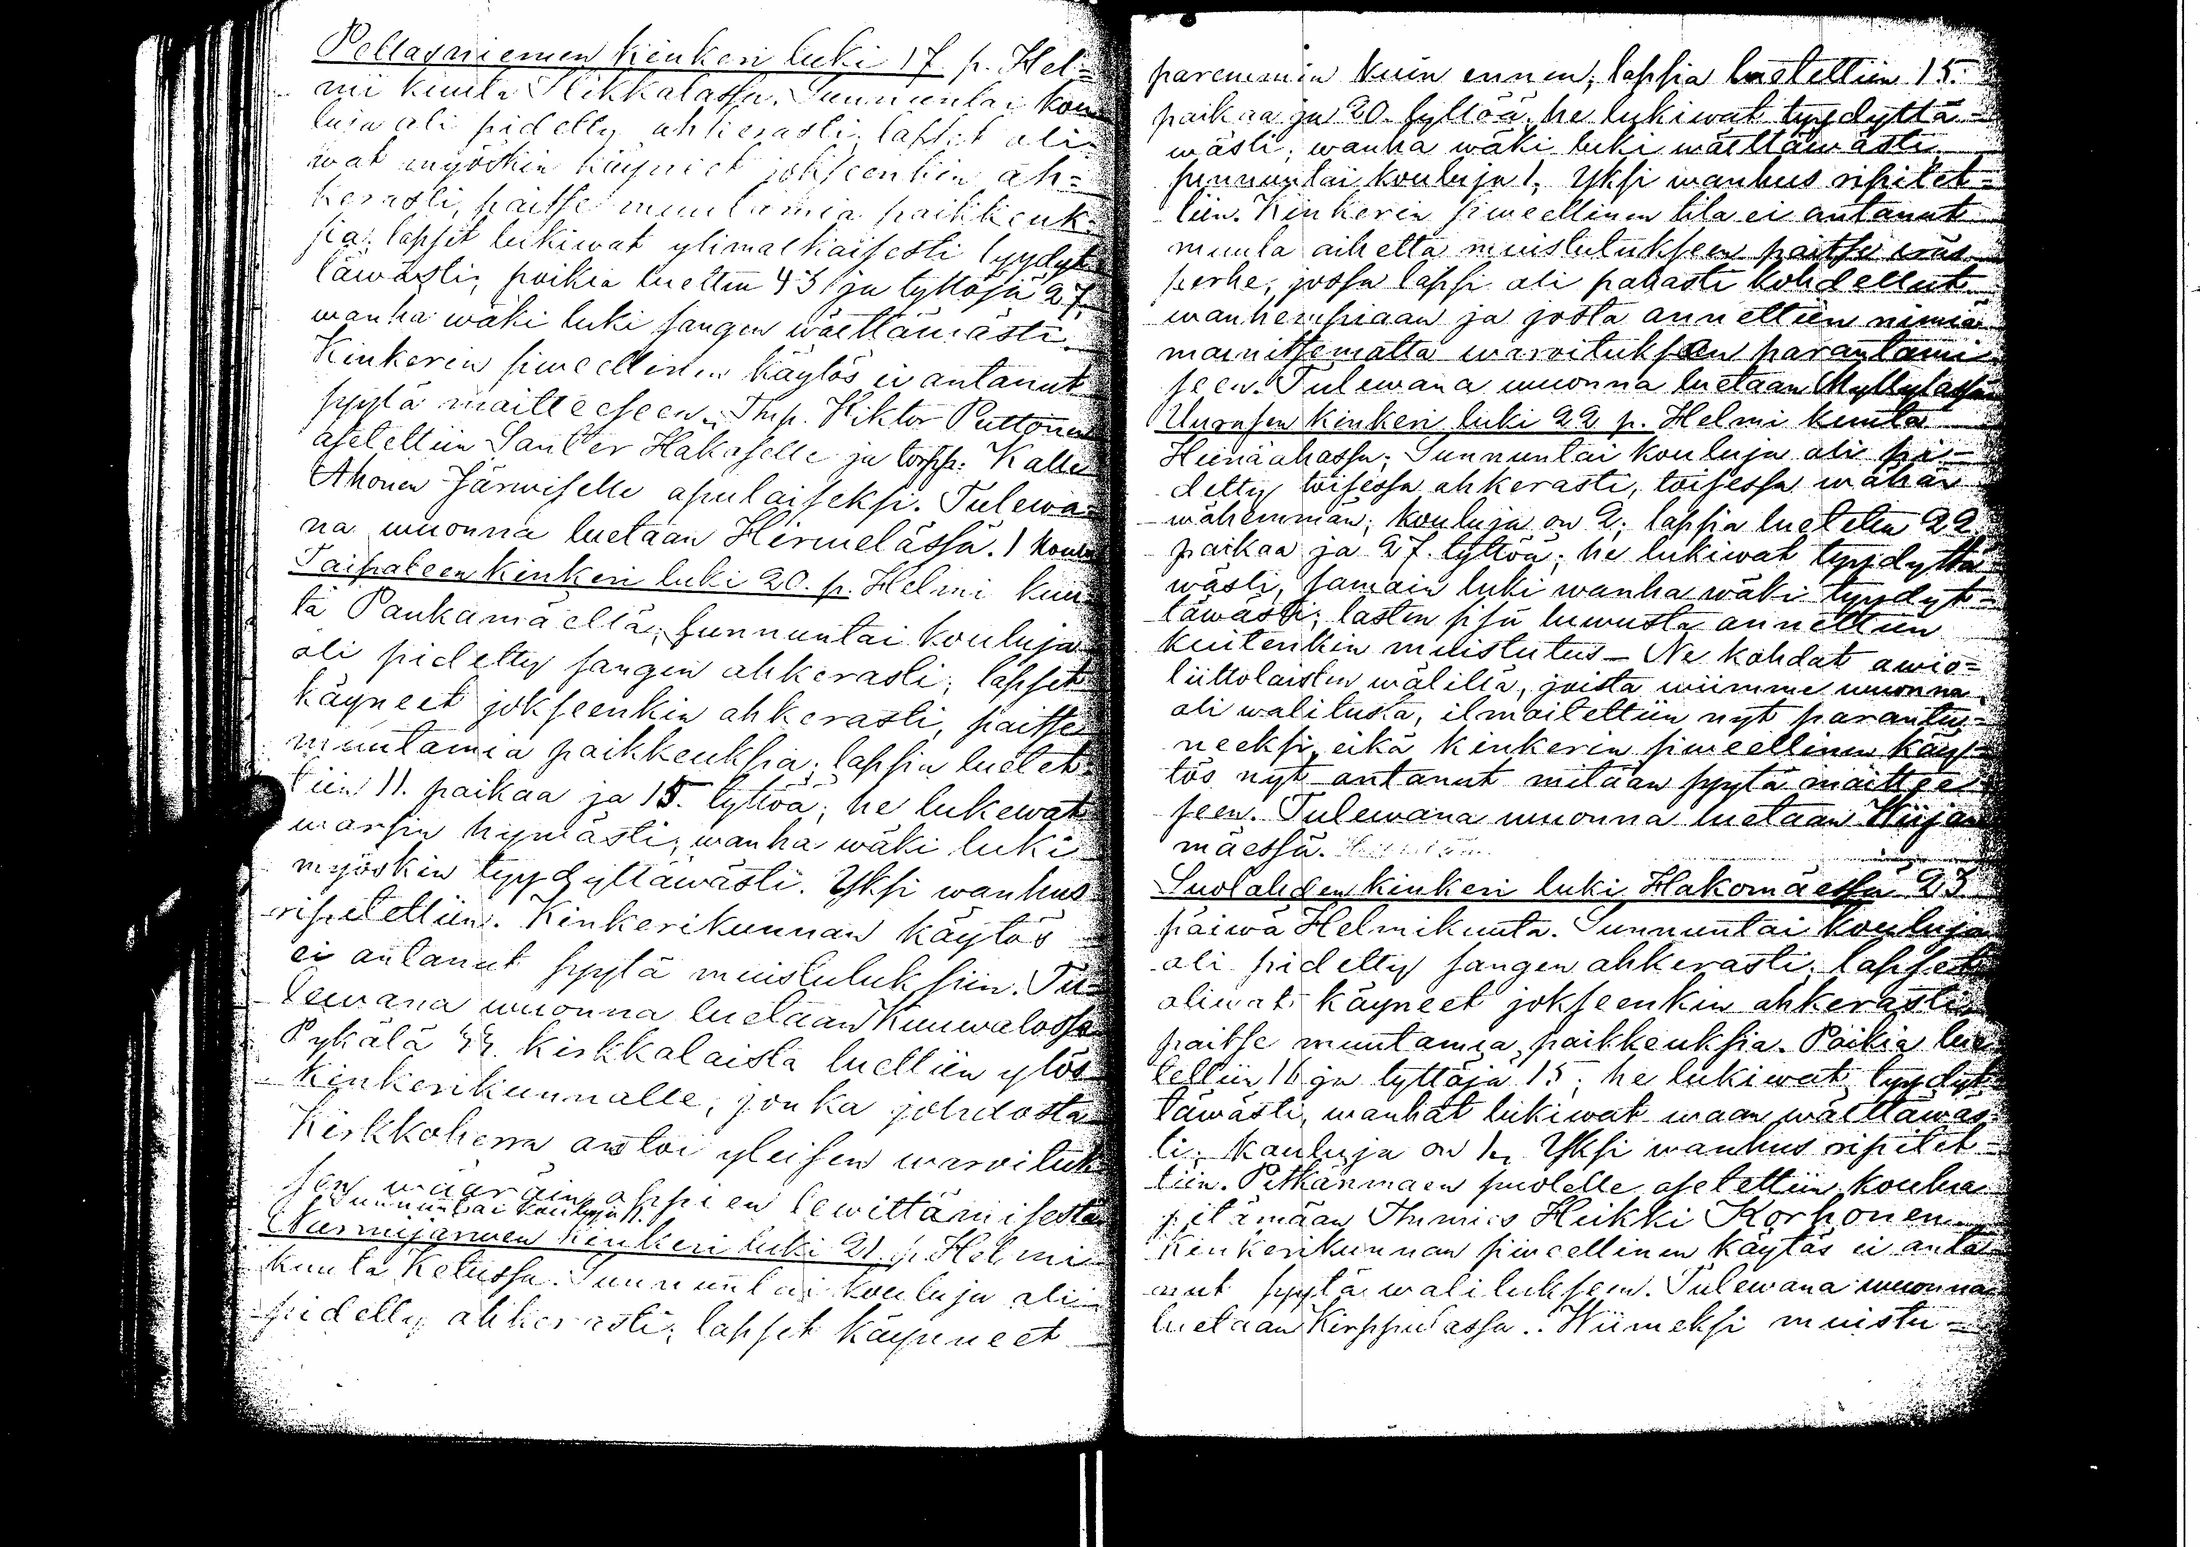 Pellasniemen kinkeri luki 17. p. Hel=
mi kuuta Hikkalassa. Sunnuntai kou
luja oli pidetty ahkerasti, lapset oli=
wat myöskin käyneet jokseenkin ah=
kerasti, paitse muutamia paikkeuk=
sia; lapset lukiwat ylimalkaisesti tyydyt
täwästi, poikia luettiin 43 ja tyttöjä 27.
wanha wäki luki sangen wälttäwästi.
Kinkerin siweellinen käytös ei antanut
syytä maitteeseen. Thp. Viktor Puttonen
asetettiin Hakaselle ja torpp. Kalle
Ahonen Järwiselle apulaiseksi. Tulewa=
na wuonna luetaan Hirmelässä. 1 koulu
Taipaleen kinkeri luki 20. p. Helmi kuu
ta Paukamäellä; sunnuntai kouluja
oli pidetty sangen ahkerasti; lapset
käyneet jokseenkin ahkerasti, paitse
muutamia paikkeuksia; lapsia luetet=
tiin 11. poikaa ja 15. tyttöä; he lukewat
warsin hywästi; wanha wäki luki
myöskin tyydyttäwästi. Yksi wanhus
ripitettiin. Kinkerikunnan käytös
ei antanut syytä muistutuksiin. Tu=
lewana wuonna luetaan Kuuwalossa
Pykälä kirkkolaista luettiin ylös
Kinkerikunnalle, jonka johdosta
Kirkkoherra antoi yleisen waroituk
sen wääräin oppien lewittämisestä
Sunnuntai kouluja 1.
Nurmijärwen kinkeri luki 21. p. Helmi
kuuta Ketussa. Sunnuntai kouluja oli
pidetty ahkerasti; lapset käyneet
paremmin kuin ennen; lapsia luetettiin 15.
poikaa ja 20. tyttöä; he lukiwat tyydyttä=
wästi; wanha wäki luki wälttäwästi.
sunnuntai kouluja 1. Yksi wanhus ripitet=
tiin. Kinkerin siweellinen tila ei antanut
muuta aihetta muistutukseen paitse eräs
perhe, jossa lapsi oli pahasti kohdellut
wanhempiaan ja josta annettiin nimiä
mainitsematta waroituksen parantami
seen. Tulewana wuonna luetaan Myllylässä
Uurasen kinkeri luki 22 p. Helmi kuuta
Heinäahossa; Sunnuntai kouluja oli pi=
detty toisessa ahkerasti, toisessa wähän
wähemmän; kouluja on 2; lapsia luetettiin 22
poikaa ja 27. tyttöä; he lukiwat tyydyttä
wästi, samoin luki wanha wäki tyydyt=
täwästi; lasten sisä luwusta annettiin
kuitenkin muistutus — Ne kohdat awio=
liittolaisten wälillä, joista wiimme wuonna
oli walitusta, ilmoitettiin nyt parantu=
neeksi, eikä kinkerin siweellinen käy=
tös nyt antanut mitään syytä maittee
seen. Tulewana wuonna luetaan Wiijan
mäessä.
Suolahden kinkeri luki Hakomäessä 23
päiwä Helmikuuta. Sunnuntai kouluja
oli pidetty sangen ahkerasti; lapset
oliwat käyneet jokseenkin ahkerasti
paitse muutamia paikkeuksia. Poikia lue
tettiin 16 ja tyttöjä 15; he lukiwat tyydyt
täwästi, wanhat lukiwat waan wälttäwäs
ti; kouluja on 1. Yksi wanhus ripitet=
tiin. Pitkänmaen puolelle asetettiin koulua
pitämään Thmies Heikki Korhonen.
Kinkerikunnan siweellinen käytös ei anta
nut syytä walitukseen. Tulewana wuonna
luetaan Kirppulassa. Wiimeksi muistu=